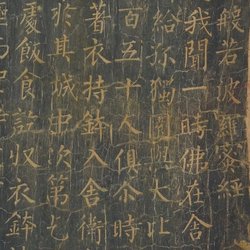 般若波羅蜜經
我聞一時佛在舍
給孤獨園與大比
百五十人俱尒時
著衣持鉢入舍衛
於其城中次第乞
處飯食訖收衣鉢